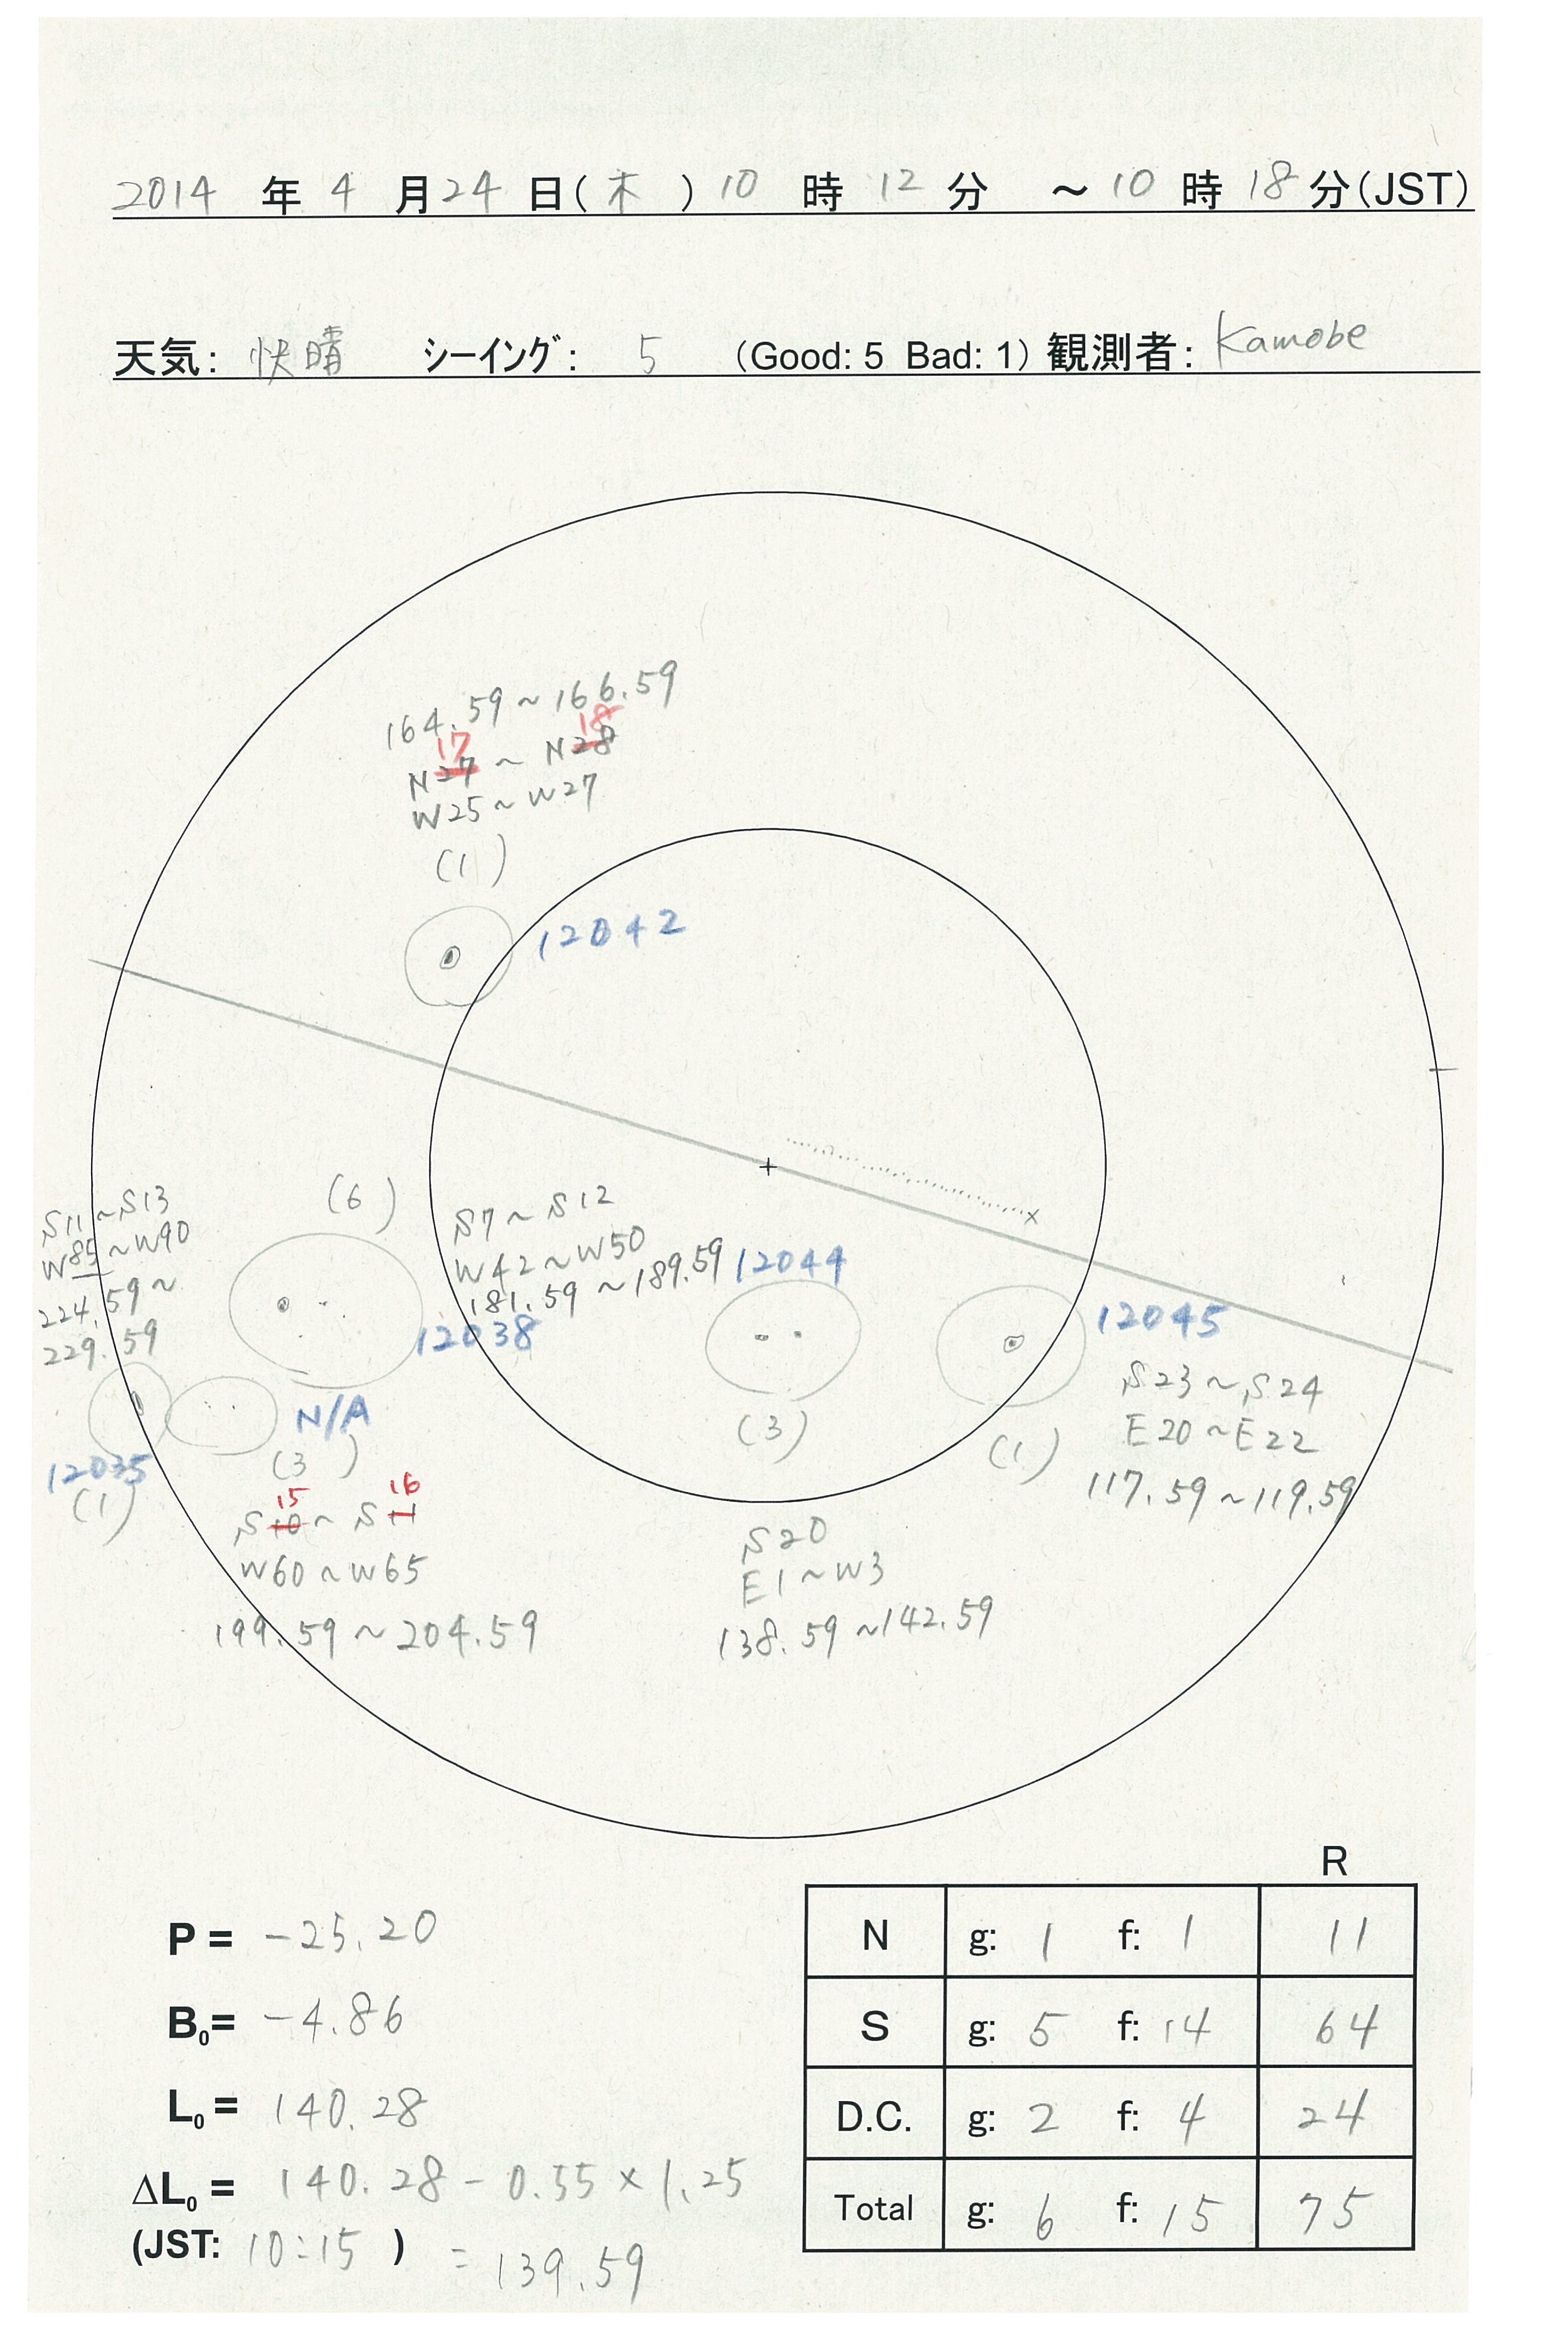 2014 年 4 月 24 日(木) 10 時 12 分 ～ 10 時 18 分(JST)
天気: 快晴 シーイング: 5 (Good: 5 Bad: 1) 観測者: Kamobe
164.59~166.59
17 18
N27 ~ N28
W25~W27
(1)
12042
(6)
S11~S13
W85~W90
224.59~
229.59
S7~S12
W42~W50
181.59~189.59
12038
12044
12045
S23~S24
E20~E22
117.59~119.59
(1)
(3)
N/A
12035
(1)
(3)
15 16
S10~S11
W60~W65
199.59~204.59
S20
E1~W3
138.59~142.59
R
N g: 1 f: 1 11
S g: 5 f: 14 64
D.C. g: 2 f: 4 24
Total g: 6 f: 15 75
P = -25.20
B0= -4.86
L0= 140.28
ΔL0= 140.28-0.55×1.25
(JST: 10:15) = 139.59